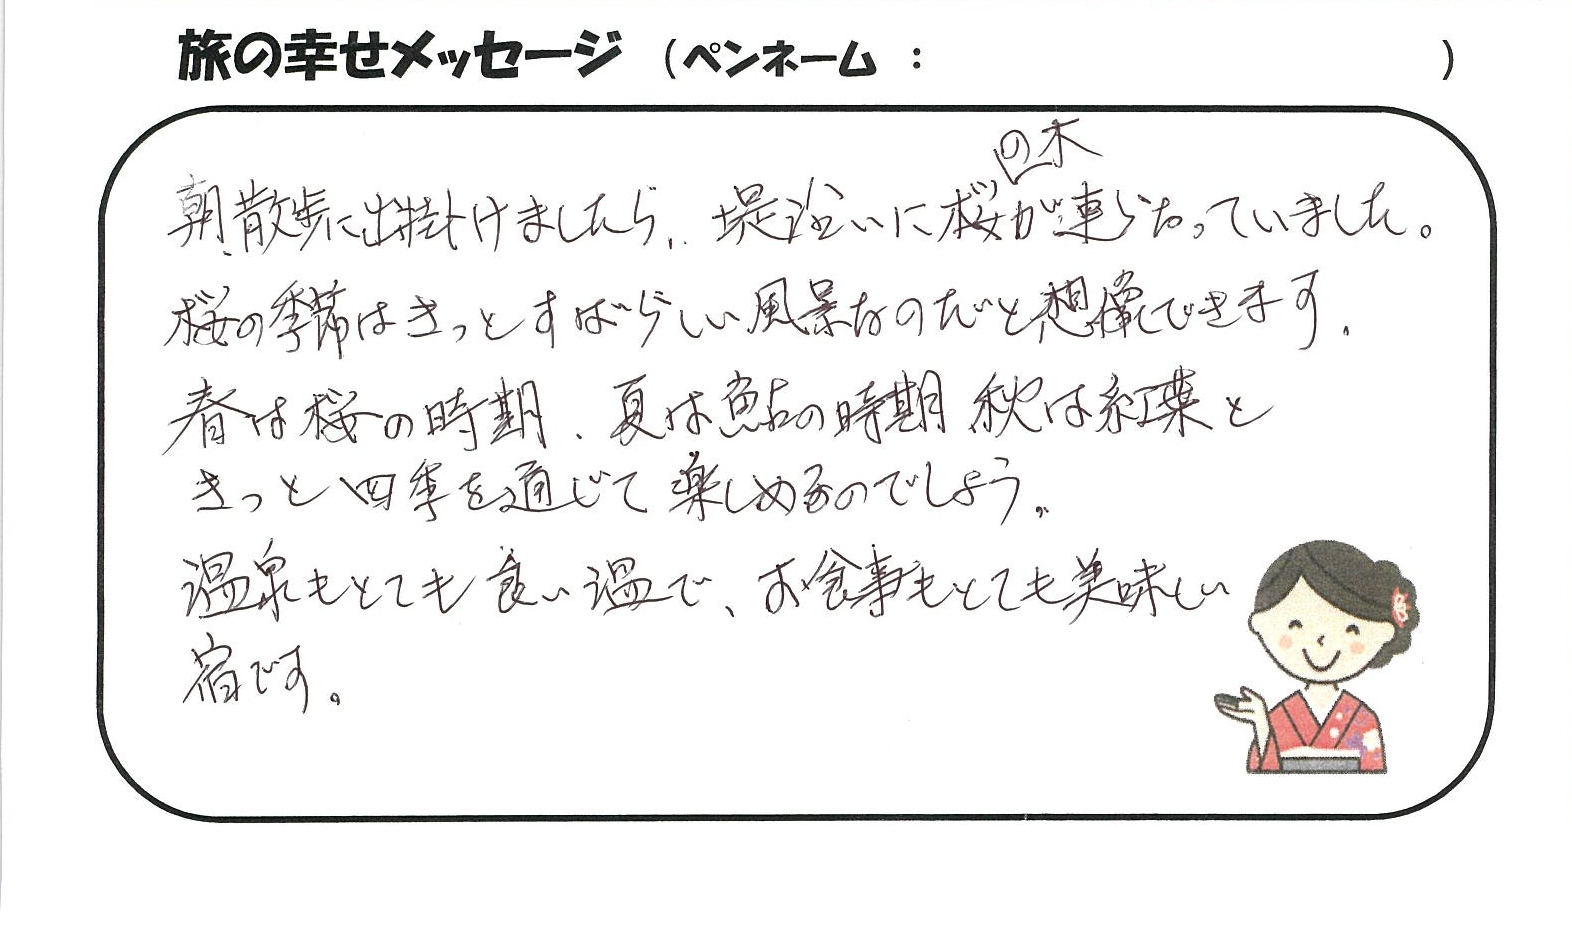 旅の幸せメッセージ (ペンネーム : )
朝、散歩に出掛けましたら、堤沿いに桜の木が連らなっていました。
桜の季節はきっとすばらしい風景なのだと想像できます。
春は桜の時期、夏は鮎の時期 秋は紅葉と
きっと四季を通じて楽しめるのでしょう。
温泉もとても良い温で、お食事もとても美味しい
宿です。